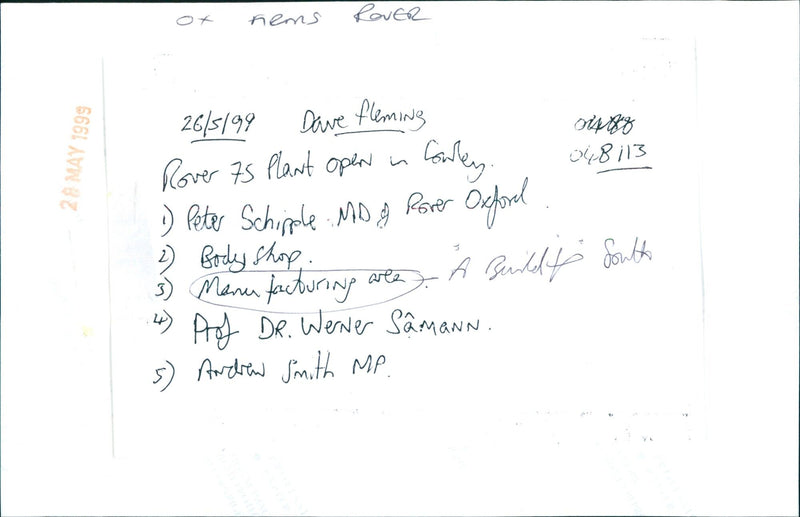 OX FIRMS ROVER
28 MAY 1999
26/5/99 Dave Fleming
048113
Rover 75 Plant open in Cowley.
1) Peter Schipple. MD of Rover Oxford.
2) Body Shop.
3) Manufacturing area. "A Build Up" South
4) Prof DR. Werner Sâmann.
5) Andrew Smith MP.